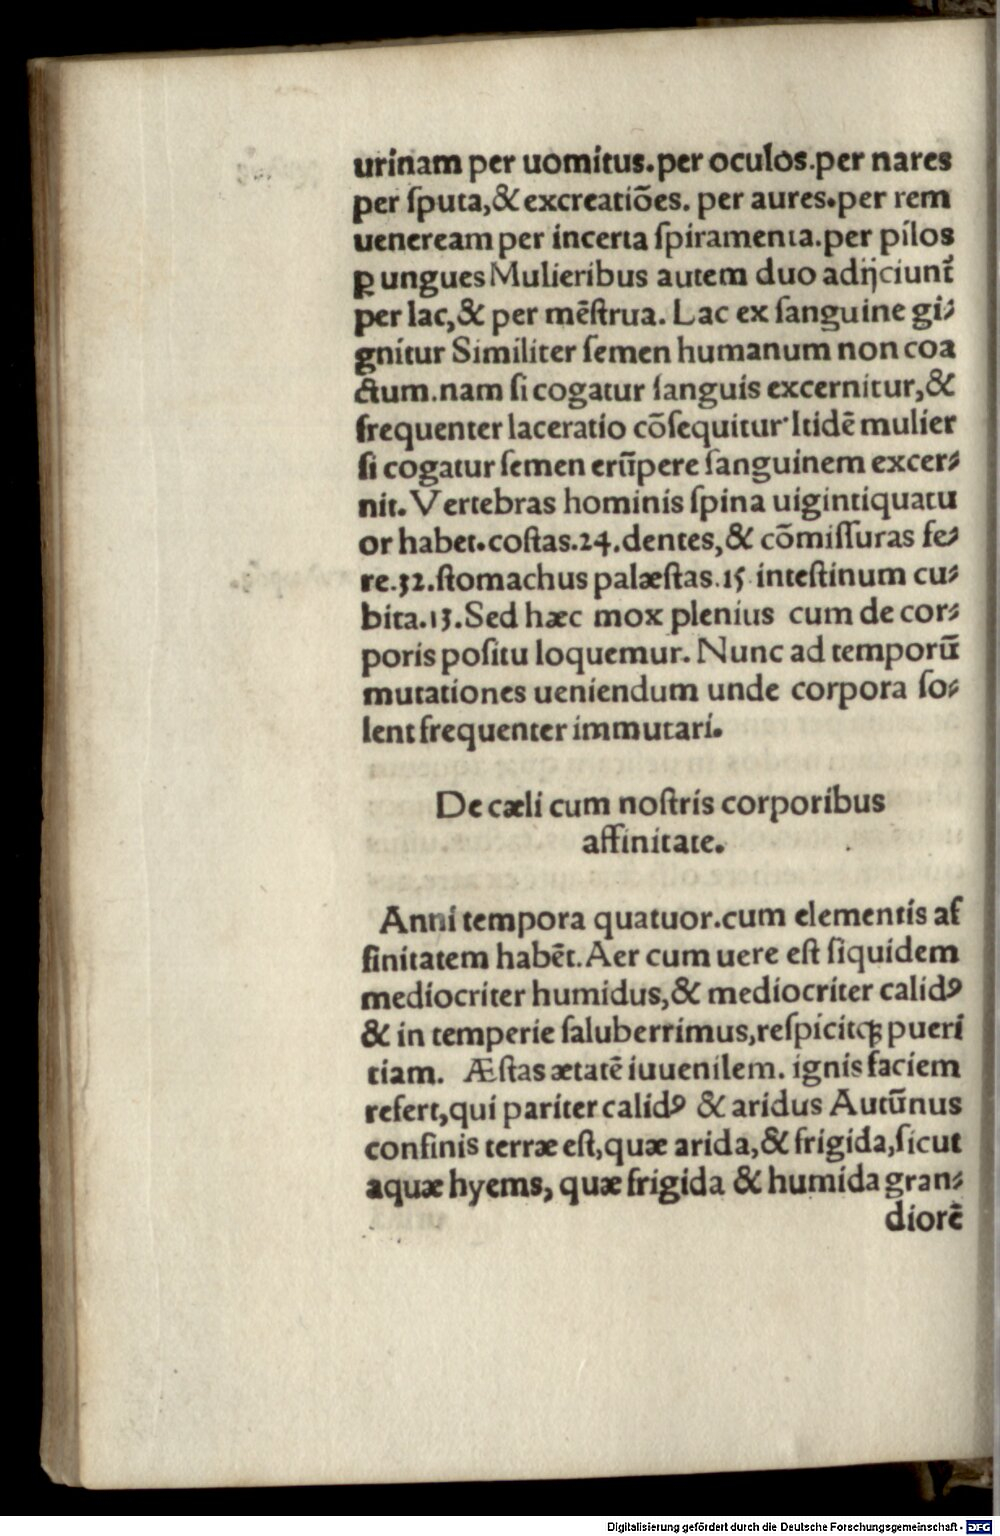 urinam per uomitus.per oculos.per nares
per ſputa,& excreatiões. per aures.per rem
ueneream per incerta ſpiramenta.per pilos
ꝑ ungues Mulieribus autem duo adijciunt᷑
per lac,& per mẽſtrua. Lac ex ſanguine gi⸗
gnitur Similiter ſemen humanum non coa
ctum.nam ſi cogatur ſanguis excernitur,&
frequenter laceratio cõſequitur·Itidẽ mulier
ſi cogatur ſemen erũpere ſanguinem excer⸗
nit. Vertebras hominis ſpina uigintiquatu
or habet.coſtas.24.dentes,& cõmiſſuras fe⸗
re.32.ſtomachus palæſtas.15 inteſtinum cu⸗
bita.13.Sed hæc mox plenius cum de cor⸗
poris poſitu loquemur. Nunc ad temporũ
mutationes ueniendum unde corpora ſo⸗
lent frequenter immutari.
De cæli cum noſtris corporibus
affinitate.
Anni tempora quatuor.cum elementis af
finitatem habẽt.Aer cum uere eſt ſiquidem
mediocriter humidus,& mediocriter calidꝰ
& in temperie ſaluberrimus,reſpicitqꝫ pueri
tiam. Æſtas ætatẽ iuuenilem. ignis faciem
refert,qui pariter calidꝰ & aridus Autũnus
confinis terræ eſt,quæ arida,& frigida,ſicut
aquæ hyems, quæ frigida & humida gran⸗
diorẽ
Digitalisierung gefördert durch die Deutsche Forschungsgemeinschaft - DFG